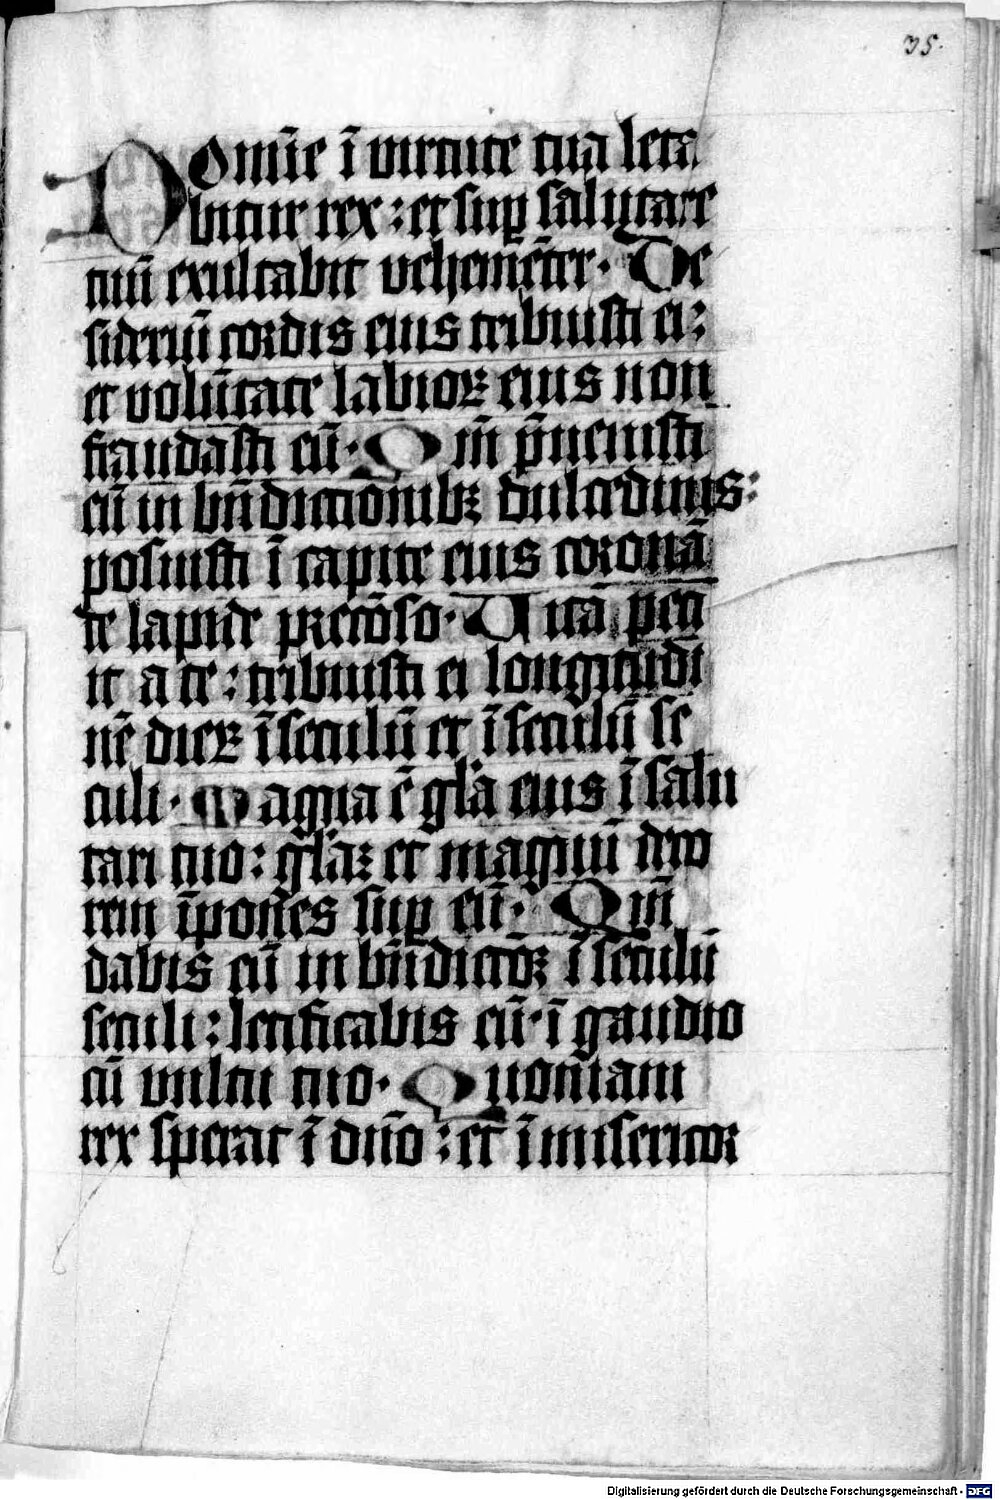 35.
Domīe ī virtute tua leta
bitur rex : et sup̱ salutare
tuū exultabit vehemēter · De
sideriū cordis eius tribuisti ei :
et volūtate labioꝝ eius non
fraudasti eū · Qm̄ p̄uenisti
eū in bn̄dictionibꝫ dulcedinis :
posuisti ī capite eius coronā
de lapide precioso · Uitā peti
it a te : tribuisti ei longitudi
nē dieꝝ ī seculū et ī seculū se
culi · Magna ē gl̄a eius ī salu
tari tuo : gl̄aꝫ et magnū deco
rem īpones sup̱ eū · Qm̄
dabis eū in bn̄dictōꝫ ī seculū
seculi : letificabis eū · ī gaudio
cū vultu tuo · Quoniam
rex sperat ī dn̄o : et ī misericor
Digitalisierung gefördert durch die Deutsche Forschungsgemeinschaft - DFG